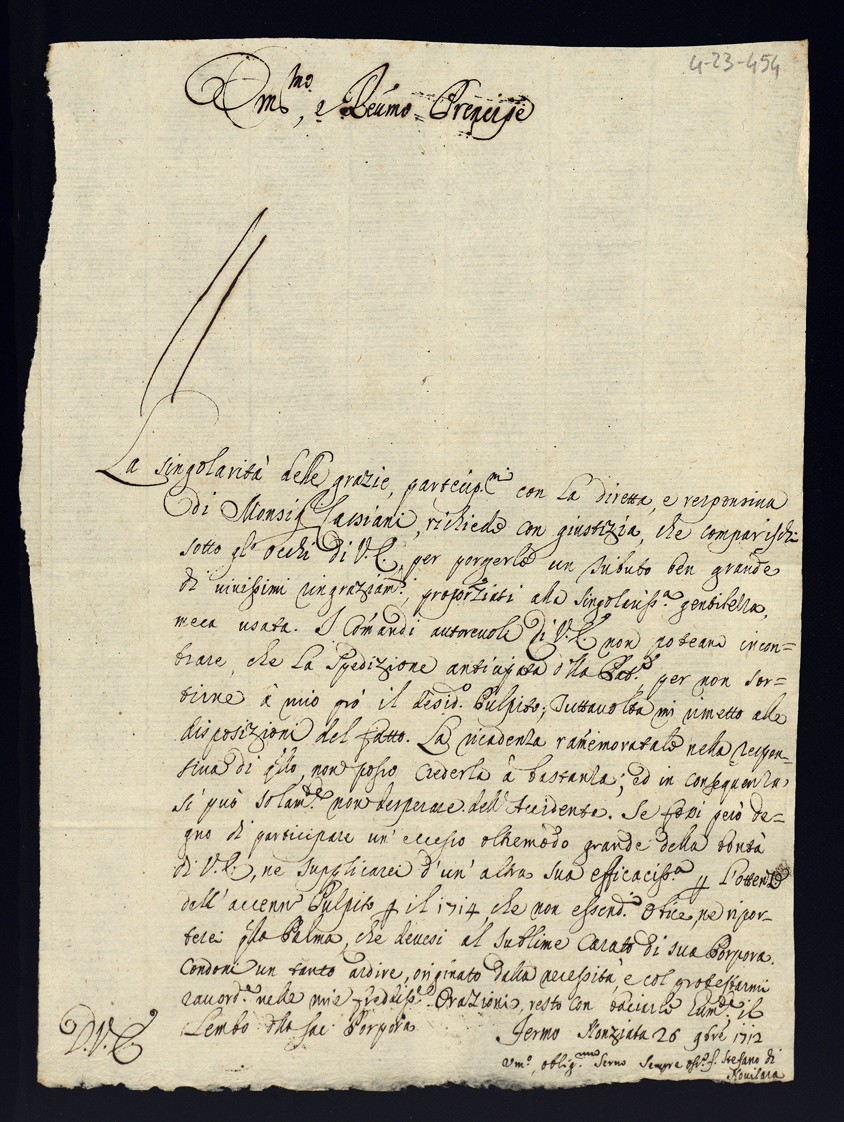 4-23-454
Em.mo, e Reumo Prencipe
La singolarità delle grazie, partecip.mi con la diretta, e responsiua
di Monsig.r Passiani, richiede con giustizia, che comparischi
sotto gl' occhi di V.E. per porgerle un tributo ben grande
di uiuissimi ringraziam.ti, proporziati alla singolariss.a gentilezza,
meco usata. I Comandi autoreuoli di V.E. non poteano incon=
trare, che la Spedizione anticipata d'lla Pat.e, per non sor=
tirne à mio prò il desid.o Pulpito; Tuttauolta mi rimetto alle
disposizioni del fatto. La uicadenza ramemoratale nella respon-
siua di q̃llo, non posso crederla à bastanza; ed in conseguenza
si può solam.te non desperare dell' Accidente. Se fossi però de=
gno di participare un' eccesso oltremodo grande della bontà
di V.E., ne supplicarei d'un' altra sua efficaciss.a p l'ottenere
dell' accenn.o Pulpito p il 1714, che non essend.o Obice, ne ripor-
terei q̃lla Palma, che deuesi al sublime Carato di sua Porpora.
Condoni un tanto ardire, originato dalla necessità, e col protestarmi
raccord.e nelle mie freddiss.e Orazioni, resto con baciarle hum.te il
Lembo d'lla sac. Porpora
D.V.E.
Fermo Nonziata 26 9bre 1712
Um.o, oblig.mo Seruo sempre oss.o f. Stefano di
Nouilara